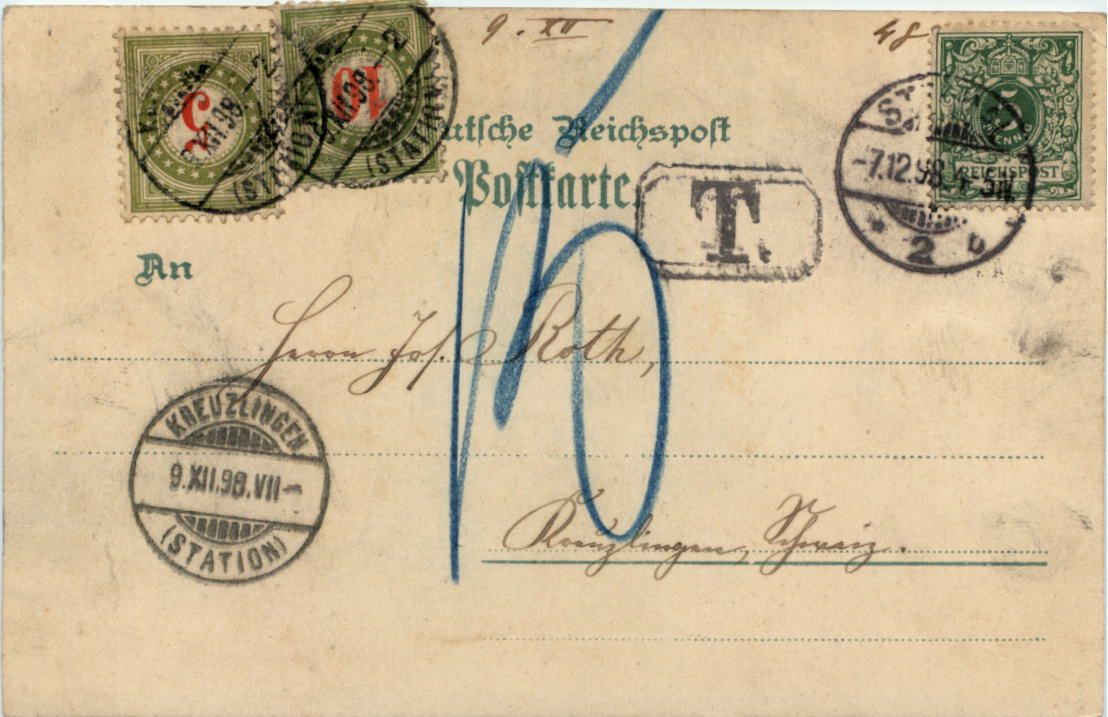 9. XII
48
5
10
5
REICHSPOST
XII.98.
(STATION)
XII.98.
(STATION)
Deutsche Reichspost
Postkarte.
T.
-7.12.98.
* 2 b
An
15
Herrn Jos. Roth,
KREUZLINGEN
9.XII.98.VII-
(STATION)
Kreuzlingen, Schweiz.